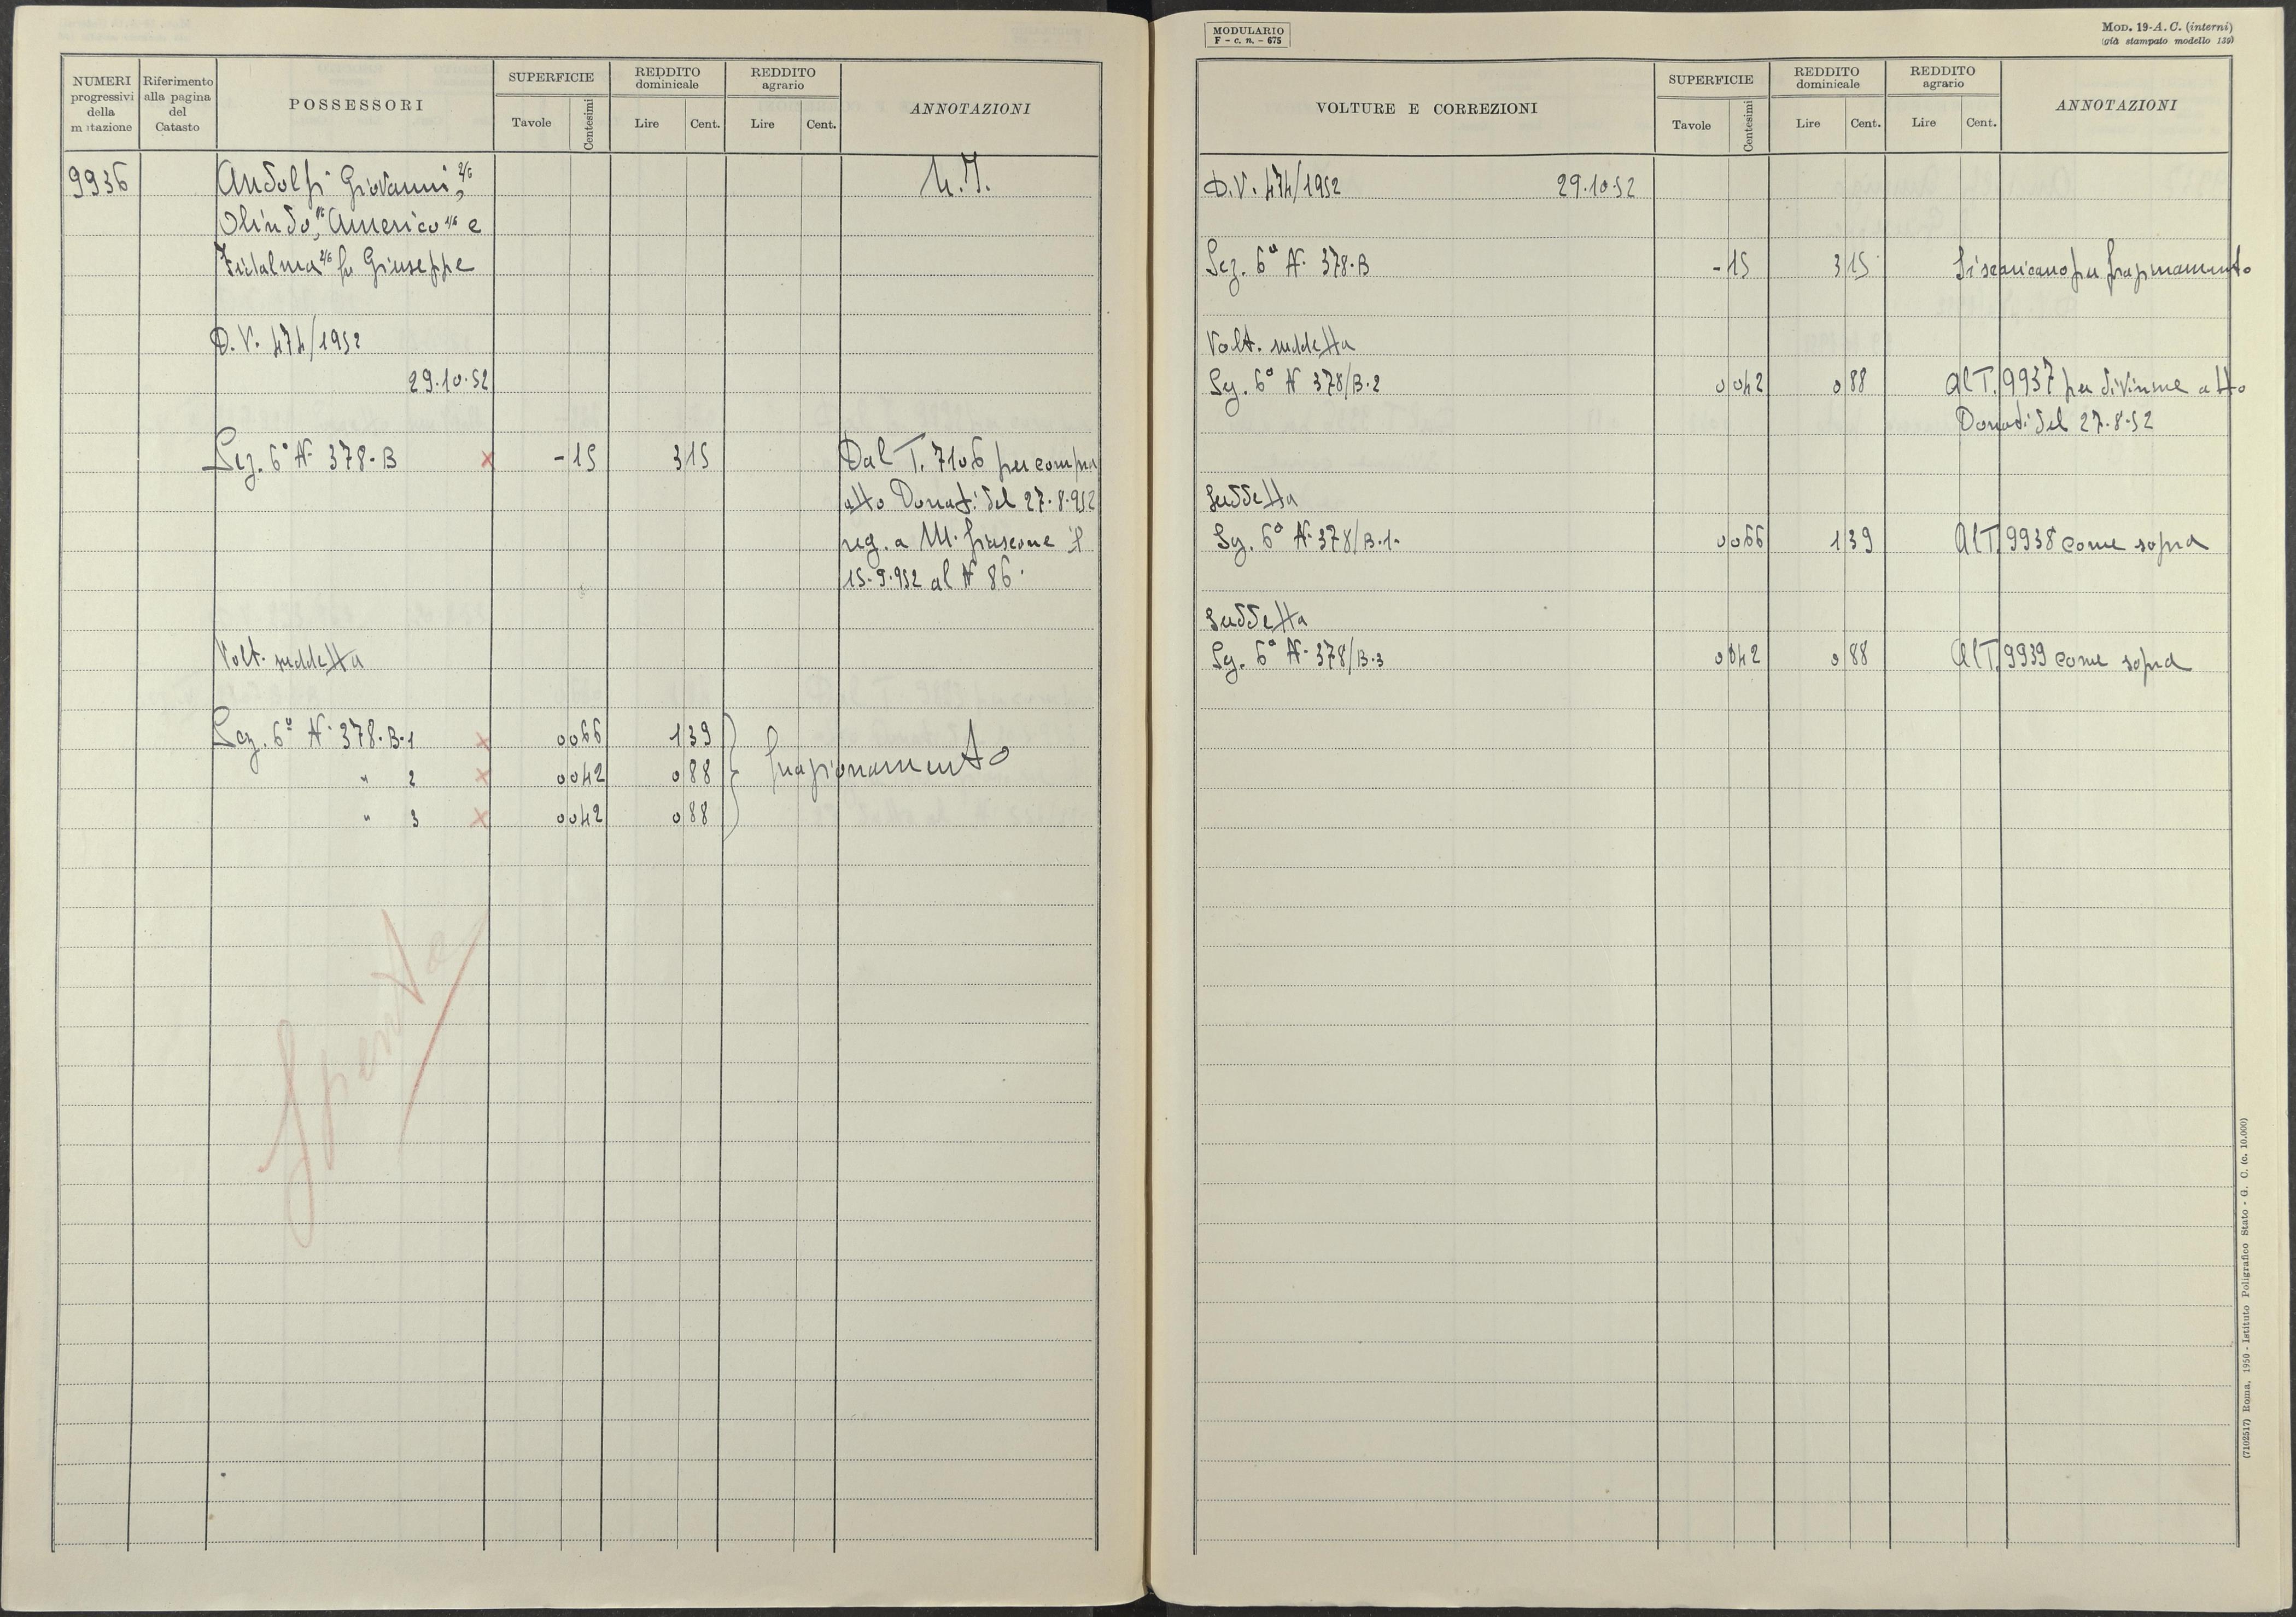 NUMERI progressivi della mutazione
Riferimento alla pagina del Catasto
POSSESSORI
SUPERFICIE
Tavole Centesimi
REDDITO dominicale
Lire Cent.
REDDITO agrario
Lire Cent.
ANNOTAZIONI
9936 Andolfi Giovanni, 2/6
Olindo, 1/6 Americo 1/6 e
Fidalma 2/6 fu Giuseppe
D.V. 474/1952
29.10.52
Sez. 6ª N. 378-B x -15 3 15 Dal T. 7106 per compra
atto Donati del 27.8.952
reg. a M. fiascone il
15-9-952 al N 86.
Volt. suddetta
Sez. 6ª N. 378-B-1 x 0066 1 39
" 2 x 0042 0 88 frazionamento
" 3 x 0042 0 88
Spenta
MODULARIO
F - c. n. - 675
MOD. 19-A. C. (interni)
(già stampato modello 139)
VOLTURE E CORREZIONI
SUPERFICIE
Tavole Centesimi
REDDITO dominicale
Lire Cent.
REDDITO agrario
Lire Cent.
ANNOTAZIONI
D.V. 474/1952 29.10.52
Sez. 6ª N. 378-B -15 3 15 Si scaricano per frazionamento
Volt. suddetta
Sez. 6ª N 378/B-2 0042 0 88 Al T. 9937 per divisione atto
Donati del 27-8-52
Suddetta
Sez. 6ª N. 378/B-1- 0066 1 39 Al T. 9938 come sopra
Suddetta
Sez. 6ª N. 378/B-3 0042 0 88 Al T. 9939 come sopra
(7102517) Roma, 1950 - Istituto Poligrafico Stato - G. C. (c. 10.000)